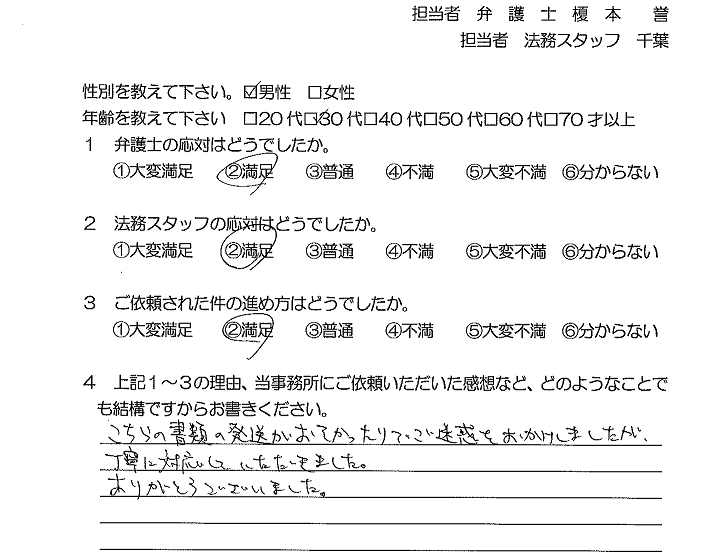 担当者 弁護士榎本 誉
担当者 法務スタッフ 千葉
性別を教えて下さい。☑男性 □女性
年齢を教えて下さい □20代☑30代□40代□50代□60代□70才以上
1 弁護士の応対はどうでしたか。
①大変満足 ②満足 ③普通 ④不満 ⑤大変不満 ⑥分からない
2 法務スタッフの応対はどうでしたか。
①大変満足 ②満足 ③普通 ④不満 ⑤大変不満 ⑥分からない
3 ご依頼された件の進め方はどうでしたか。
①大変満足 ②満足 ③普通 ④不満 ⑤大変不満 ⑥分からない
4 上記1～3の理由、当事務所にご依頼いただいた感想など、どのようなことで
も結構ですからお書きください。
こちらの書類の発送がおそかったりでご迷惑をおかけしましたが、
丁寧に対応していただきました。
ありがとうございました。